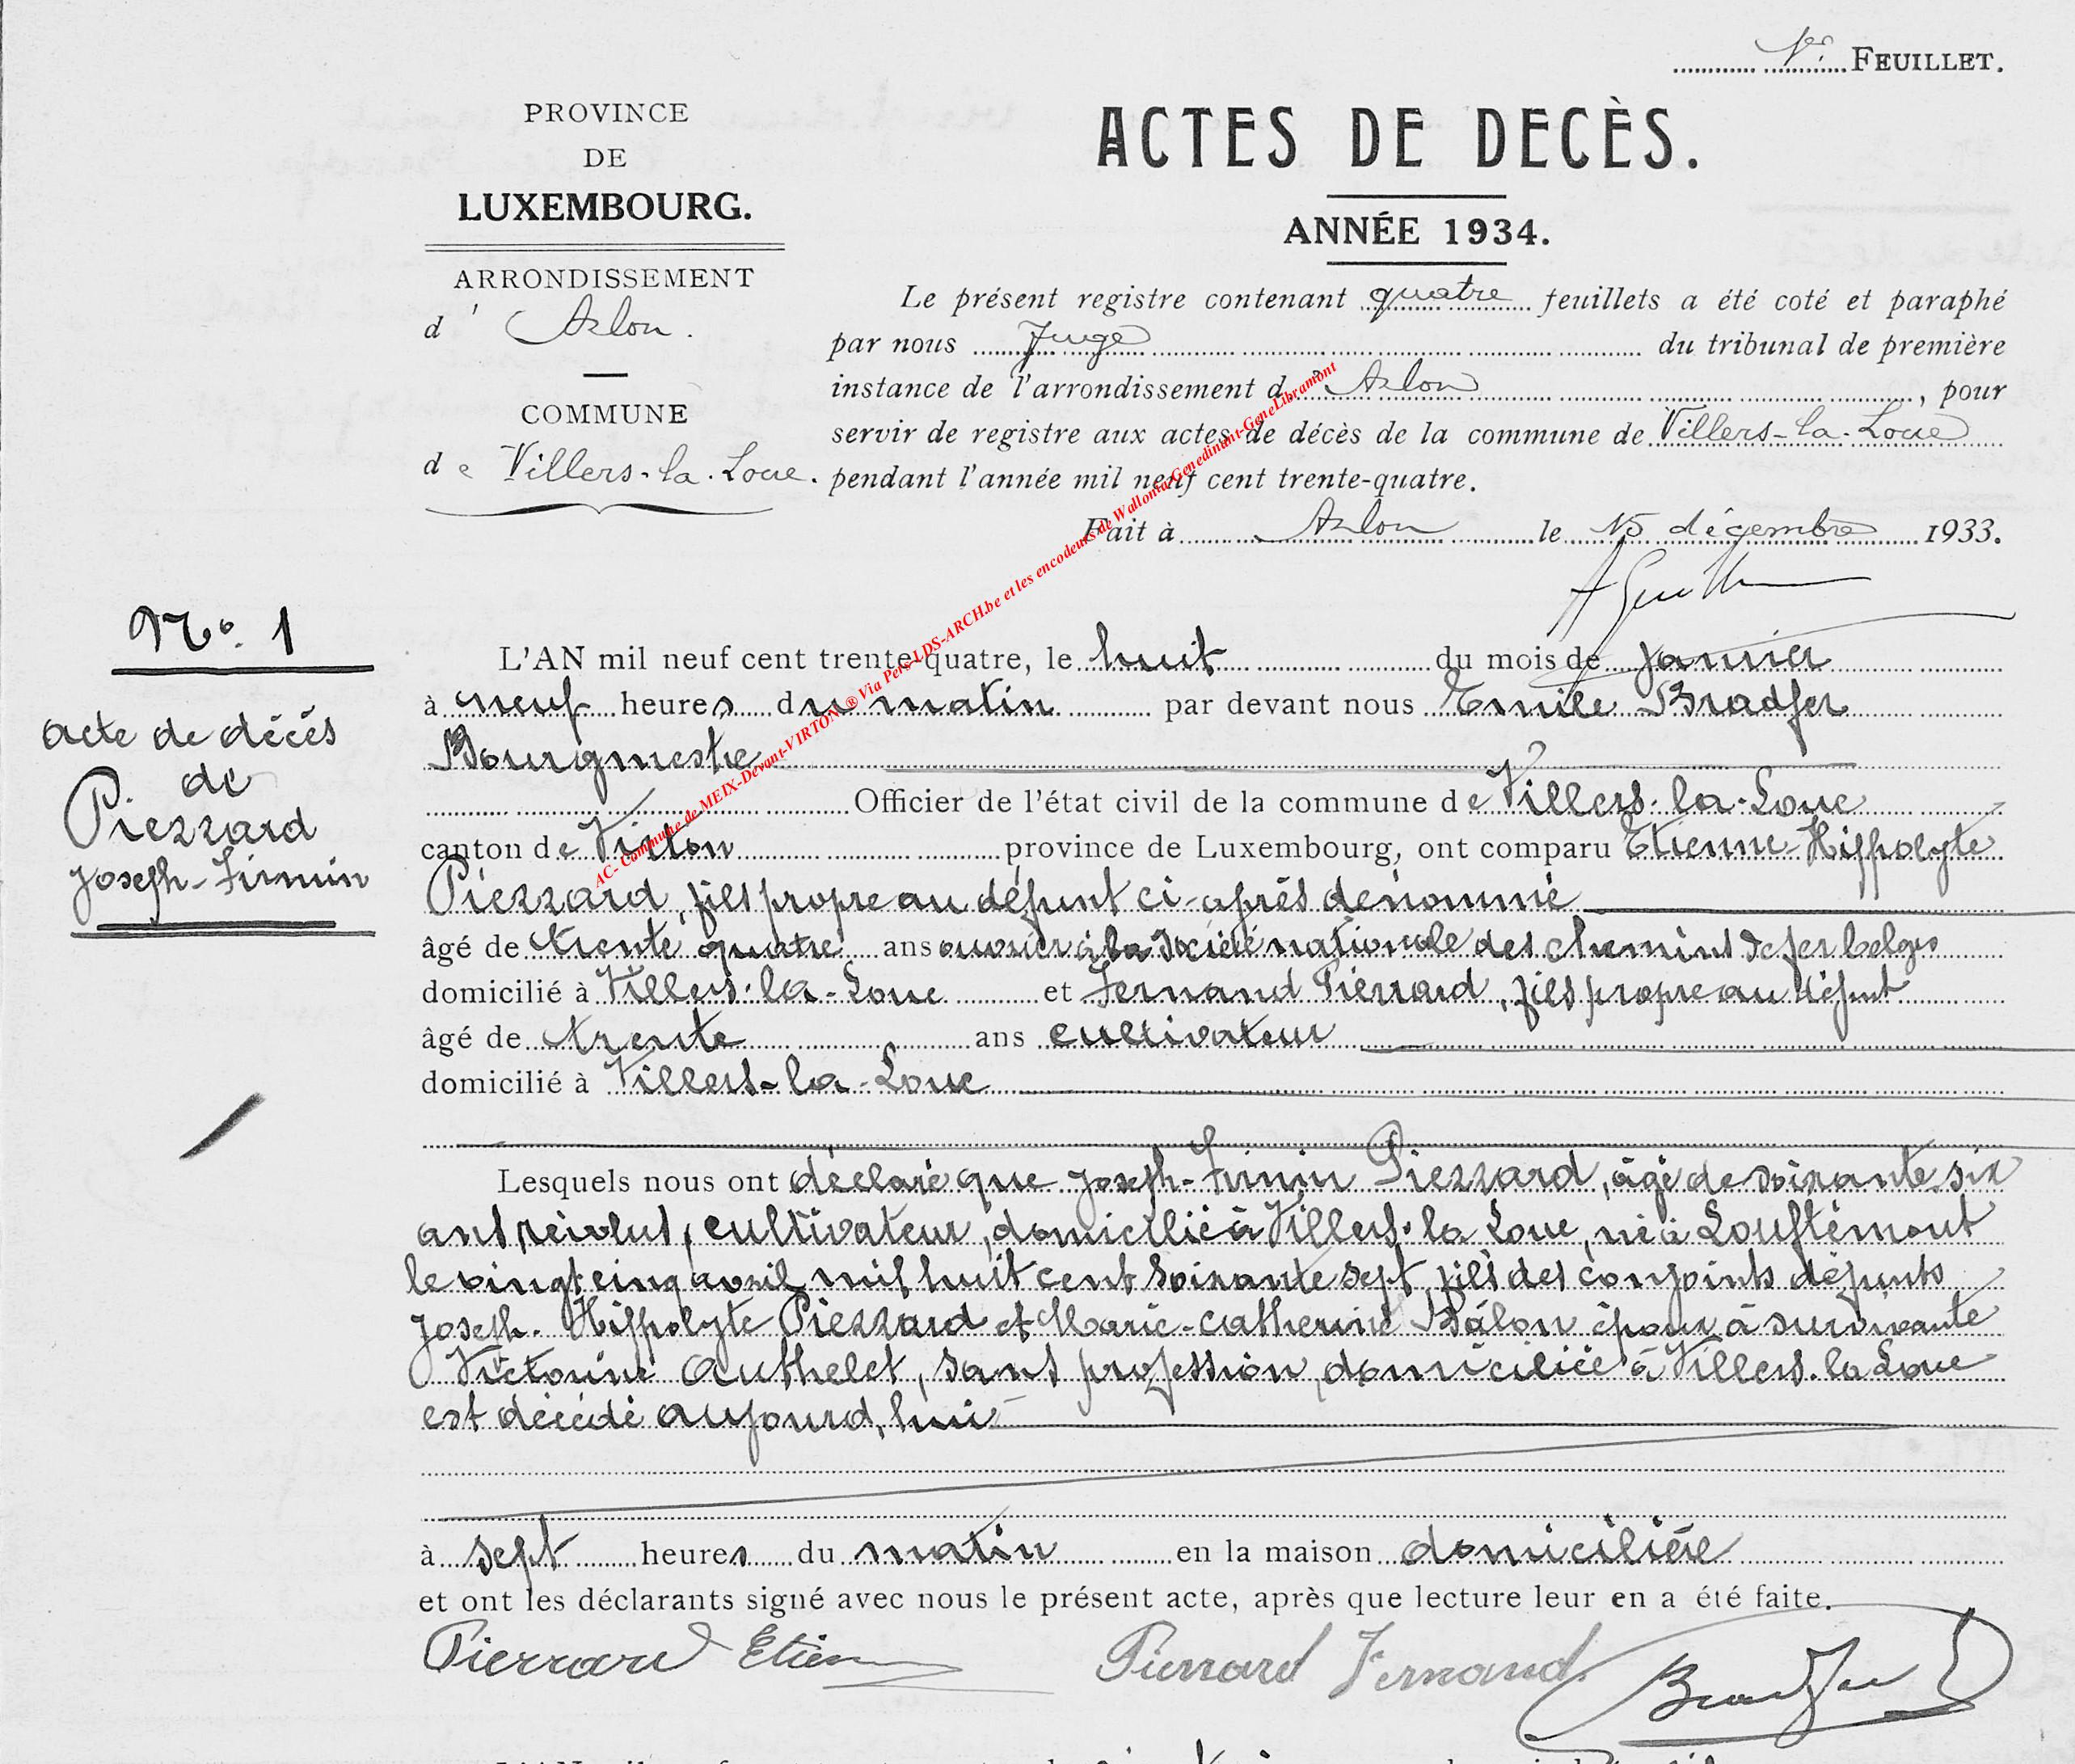 1er FEUILLET.
PROVINCE
DE
LUXEMBOURG.
ARRONDISSEMENT
d'Arlon.
COMMUNE
de Villers-la-Loue.
ACTES DE DECÈS.
ANNÉE 1934.
Le présent registre contenant quatre feuillets a été coté et paraphé
par nous Juge du tribunal de première
instance de l'arrondissement d'Arlon, pour
servir de registre aux actes de décès de la commune de Villers-la-Loue
pendant l'année mil neuf cent trente-quatre.
Fait à Arlon le 15 décembre 1933.
AC- Commune de MEIX-Devant-VIRTON ® Via Pers-LDS-ARCH.be et les encodeurs de Wallonia-Genedinant-GeneLibramont
No. 1
acte de décès
de
Pierrard
Joseph-Firmin
L'AN mil neuf cent trente-quatre, le huit du mois de janvier
à neuf heures du matin par devant nous Emile Bradfer
Bourgmestre
Officier de l'état civil de la commune de Villers-la-Loue
canton de Virton province de Luxembourg, ont comparu Etienne-Hippolyte
Pierrard, fils propre au défunt ci-après dénommé
âgé de trente quatre ans ouvrier à la société nationale des chemins de fer belges
domicilié à Villers-la-Loue et Fernand Pierrard, fils propre au défunt
âgé de trente ans cultivateur
domicilié à Villers-la-Loue
Lesquels nous ont déclaré que Joseph-Firmin Pierrard, âgé de soixante six
ans révolus, cultivateur, domicilié à Villers-la Loue, né à Louftémont
le vingt cinq avril mil huit cent soixante sept, fils des conjoints défunts
Joseph-Hippolyte Pierrard et Marie-Catherine Bálon époux à survivante
Victorine Authelet, sans profession, domiciliée à Villers-la Loue
est décédé aujourd,hui
à sept heures du matin en la maison domicilière
et ont les déclarants signé avec nous le présent acte, après que lecture leur en a été faite.
Pierrard Etien
Pierrard Fernand
Bradfer